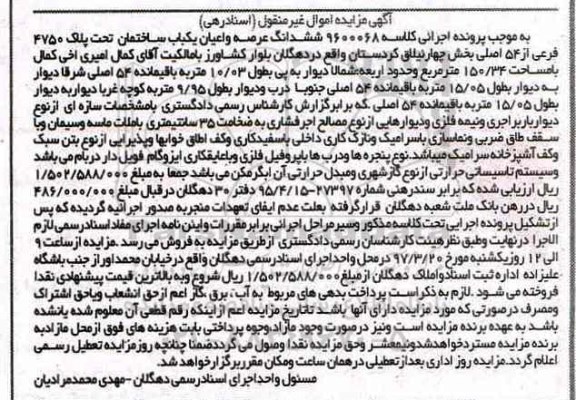 آگهی مزایده اموال غیر منقول (اسناد رهنی)
به موجب پرونده اجرائی کلاسه ۹۶۰۰۰۶۸ ششدانگ عرصه و اعیان یکباب ساختمان تحت پلاک ۴۷۵۰
فرعی از ۵۴ اصلی بخش چهار نیلاق کردستان واقع در دهگلان بلوار کشاورز با مالکیت آقای کمال امیری اخی کمال
با مساحت ۱۵۰/۳۴ مترمربع وحدود اربعه: شمالا دیوار به پی بطول ۱۰/۰۳ متر به باقیمانده ۵۴ اصلی شرقا دیوار
به دیوار بطول ۱۵/۰۵ متر به باقیمانده ۵۴ اصلی جنوبا درب ودیوار بطول ۹/۹۵ متر به کوچه غربا دیوار به دیوار
بطول ۱۵/۰۵ متر به باقیمانده ۵۴ اصلی که برابر گزارش کارشناس رسمی دادگستری با مشخصات سازه ای از نوع
دیوار باربر اجری ونیمه فلزی ودیوارهایی از نوع مصالح اجر فشاری به ضخامت ۳۵ سانتیمتری باملات ماسه وسیمان وبا
سقف طاق ضربی ونماسازی باسرامیک ونازک کاری داخلی باسفیدکاری وکف اطاق خوابها وپذیرایی از نوع بتن سبک
وکف آشپزخانه سرامیک میباشد.نوع پنجره ها ودرب ها باپروفیل فلزی وباعایقکاری ایزوگام فویل دار در بام می باشد
وسیستم تاسیساتی حرارتی از نوع گازشهری ومبدل حرارتی آن ابگرمکن می باشد جمعا به مبلغ ۱/۵۰۲/۵۸۸/۰۰۰
ریال ارزیابی شده که برابر سند رهنی شماره ۲۷۳۹۷-۹۵/۴/۱۵ دفتر ۳۰ دهگلان در قبال مبلغ ۴۸۶/۰۰۰/۰۰۰
ریال در رهن بانک ملت شعبه دهگلان قرار گرفته بعلت عدم ایفای تعهدات منجر به صدور اجرائیه گردیده که پس
از تشکیل پرونده اجرایی تحت کلاسه مذکور وسیر مراحل اجرائی برابر مقررات و ایین نامه اجرای مفاد اسناد رسمی لازم
الاجرا در نهایت وطبق نظر هیئت کارشناسان رسمی دادگستری از طریق مزایده به فروش می رسد .مزایده از ساعت ۹
الی ۱۲ روز یکشنبه مورخ ۹۷/۳/۲۰ در محل واحد اجرای اسناد رسمی دهگلان واقع در خیابان محمداور از جنب باشگاه
علیزاده اداره ثبت اسناد واملاک دهگلان از مبلغ ۱/۵۰۲/۵۸۸/۰۰۰ ریال شروع وبه بالاترین قیمت پیشنهادی نقدا
فروخته می شود .لازم به ذکر است پرداخت بدهی های مربوط به آب، برق ،گاز اعم از حق انشعاب ویاحق اشتراک
ومصرف در صورتی که مورد مزایده دارای آنها باشد تاتاریخ مزایده اعم از اینکه رقم قطعی آن معلوم شده یانشده
باشد به عهده برنده مزایده است ونیز در صورت وجود مازاد وجوه پرداختی بابت هزینه های فوق از محل مازاد به
برنده مزایده مسترد خواهدشد ونیمعشر وحق مزایده نقدا وصول می گردد ضمنا چنانچه روز مزایده تعطیل رسمی
اعلام گردد.مزایده روز اداری بعد از تعطیلی در همان ساعت ومکان مقرر برگزار خواهد شد.
مسئول واحد اجرای اسناد رسمی دهگلان -مهدی محمد مرادیان